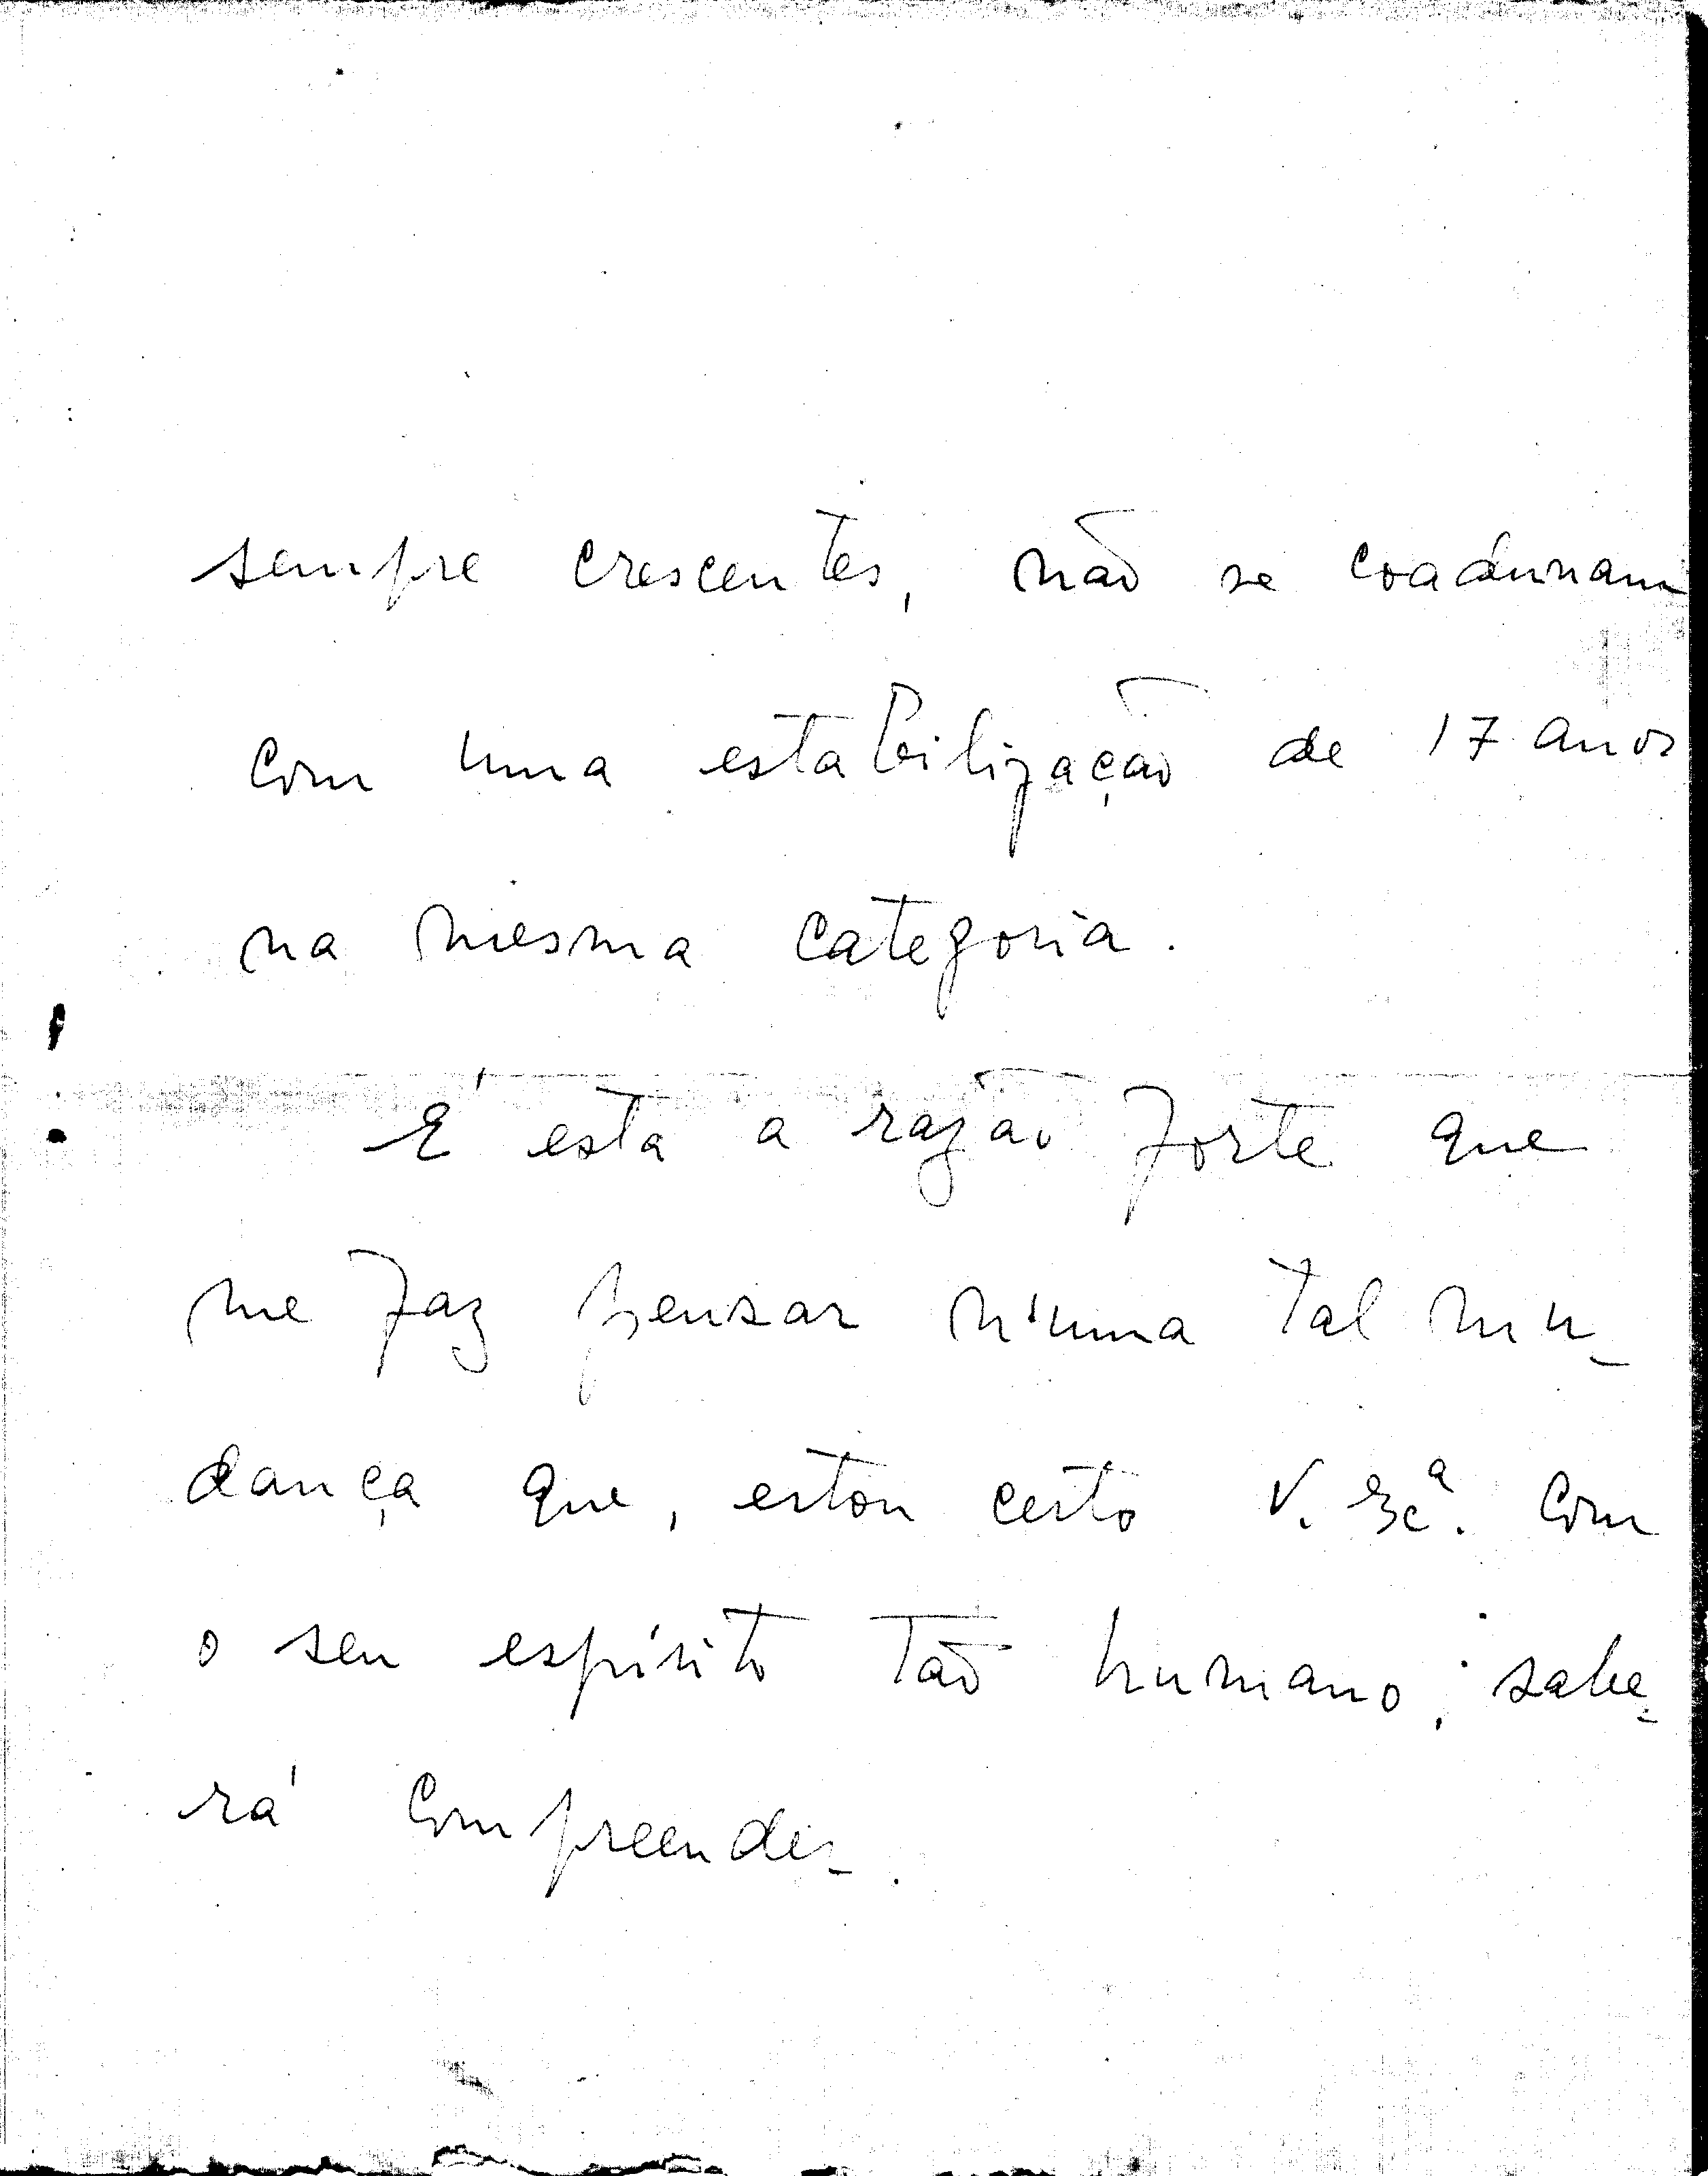 sempre crescentes, não se coadunam
com uma estabilização de 17 anos
na mesma categoria.
É esta a razão forte que
me faz pensar n'uma tal mu-
dança que, estou certo V. Exª. com
o seu espírito tão humano, sabe-
rá compreender.